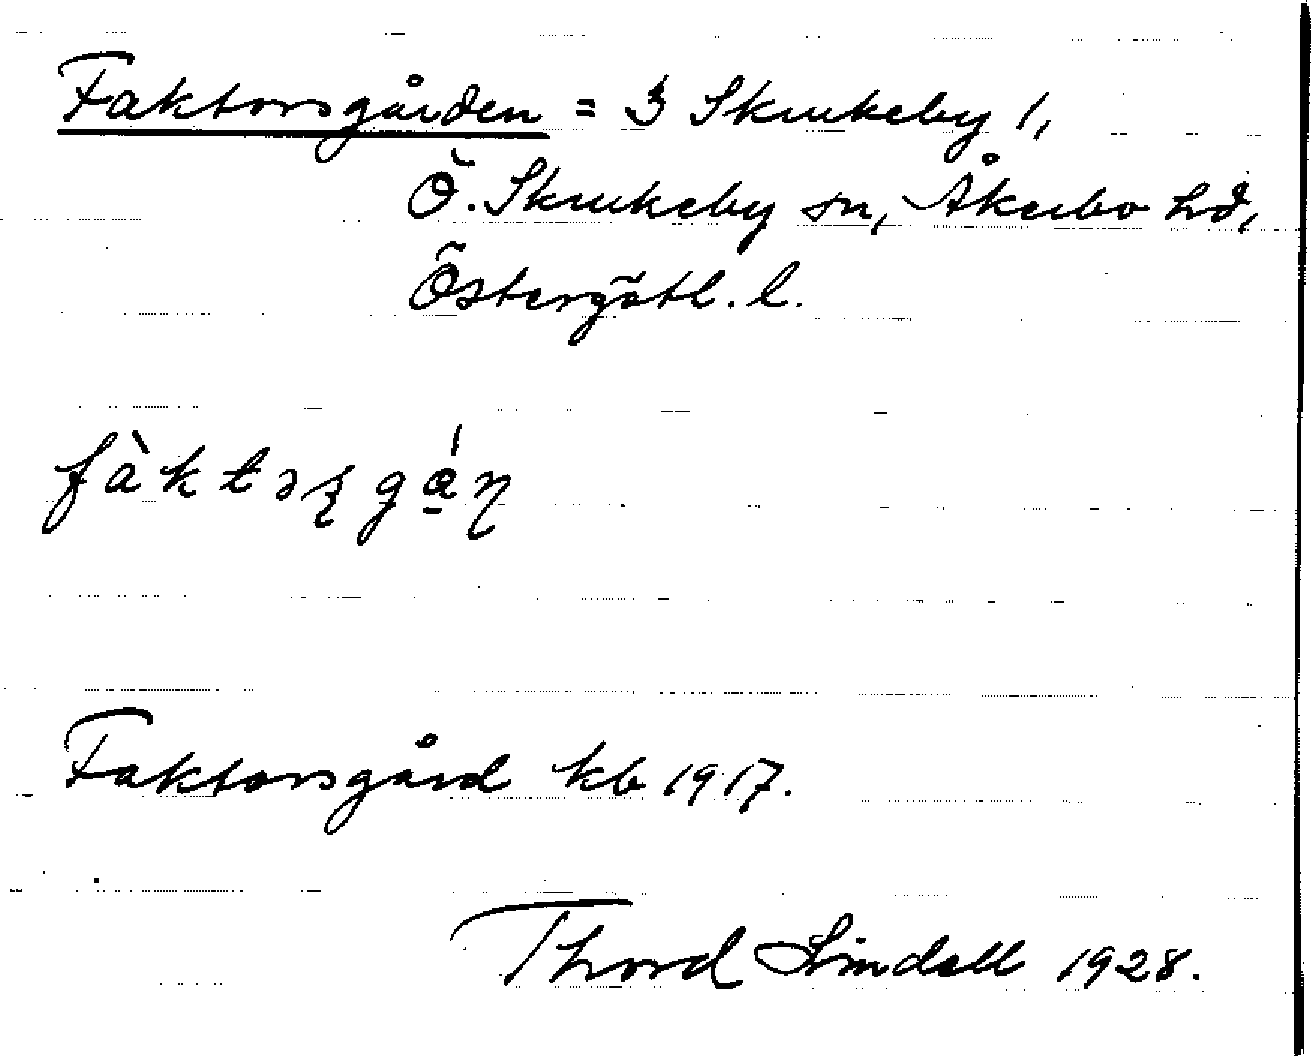 Faktorsgården = 3 Skrukeby 1,
Ö. Skrukeby sn, Åkerbo hd,
Östergötl. l.
Faktorsgård kb 1917.
Thord Lindell 1928.